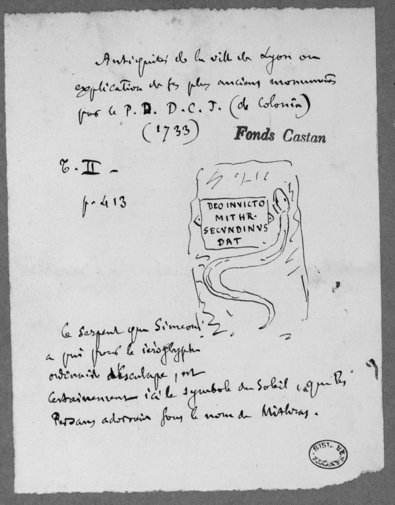 Antiquités de la ville de Lyon ou
explication de ses plus anciens monuments
par le P. D. D.C.J. (de Colonia)
(1733)
Fonds Castan
T. II -
p. 413
DEO INVICTO
MITHR-
SECVNDINVS
DAT
le serpent que Simeoni
a pris pour le hiéroglyphe
ordinaire d'Esculape, est
certainement ici le symbole du Soleil, que les
Persans adoroient sous le nom de Mithras.